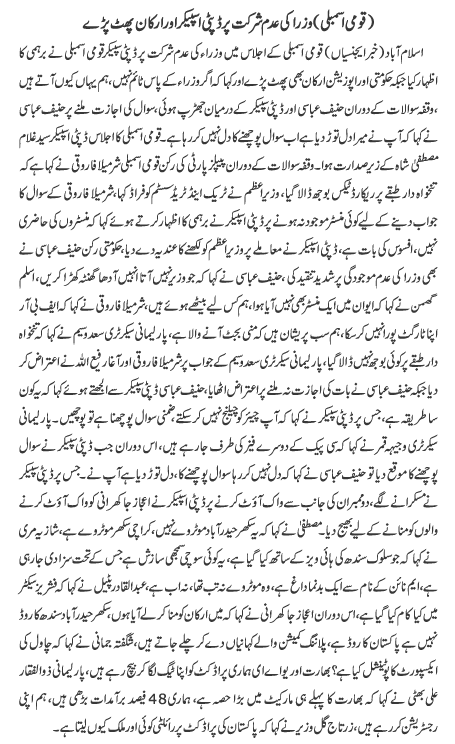 (قومی اسمبلی) وزرا کی عدم شرکت پر ڈپٹی اسپیکر اور ارکان پھٹ پڑے
اسلام آباد (خبر ایجنسیاں) قومی اسمبلی کے اجلاس میں وزراء کی عدم شرکت پر ڈپٹی اسپیکر قومی اسمبلی نے برہمی کا
اظہار کیا جبکہ حکومتی اور اپوزیشن ارکان بھی پھٹ پڑے اور کہا کہ اگر وزراء کے پاس ٹائم نہیں، ہم یہاں کیوں آتے ہیں
، وقفہ سوالات کے دوران حنیف عباسی اور ڈپٹی اسپیکر کے درمیان جھڑپ ہوئی، سوال کی اجازت ملنے پر حنیف عباسی
نے کہا کہ آپ نے میرا دل توڑ دیا ہے اب سوال پوچھنے کا دل نہیں کر رہا ہے۔ قومی اسمبلی کا اجلاس ڈپٹی اسپیکر سید غلام
مصطفیٰ شاہ کے زیر صدارت ہوا۔ وقفہ سوالات کے دوران پیپلز پارٹی کی رکن قومی اسمبلی شرمیلا فاروقی نے کہا ہے کہ
تنخواہ دار طبقے پر ریکارڈ ٹیکس بوجھ ڈالا گیا، وزیر اعظم نے ٹریک اینڈ ٹریڈ سسٹم کو فراڈ کہا، شرمیلا فاروقی کے سوال کا
جواب دینے کے لیے کوئی منسٹر موجود نہ ہونے پر ڈپٹی اسپیکر نے برہمی کا اظہار کرتے ہوئے کہا کہ منسٹروں کی حاضری
نہیں، افسوس کی بات ہے، ڈپٹی اسپیکر نے معاملے پر وزیر اعظم کو لکھنے کا عندیہ دے دیا، حکومتی رکن حنیف عباسی نے
بھی وزرا کی عدم موجودگی پر شدید تنقید کی، حنیف عباسی نے کہا کہ جو وزیر نہیں آتا نہیں آدھا گھنٹہ کھڑا کریں، اسلم
گھمن نے کہا کہ ایوان میں ایک منسٹر بھی نہیں آیا ہوا، ہم کس لیے بیٹھے ہوئے ہیں، شرمیلا فاروقی نے کہا کہ ایف بی آر
اپنا ٹارگٹ پورا نہیں کر سکا، ہم سب پریشان ہیں کہ منی بجٹ آنے والا ہے، پارلیمانی سیکرٹری سعد وسیم نے کہا کہ تنخواہ
دار طبقے پر کوئی بوجھ نہیں ڈالا گیا، پارلیمانی سیکرٹری سعد وسیم کے جواب پر شرمیلا فاروقی اور آغا رفیع اللہ نے اعتراض کر
دیا جبکہ حنیف عباسی نے بات کی اجازت نہ ملنے پر اعتراض اٹھایا، حنیف عباسی نے ڈپٹی اسپیکر سے الجھتے ہوئے کہا کہ یہ کون
سا طریقہ ہے، جس پر ڈپٹی اسپیکر نے کہا کہ آپ چیئر کو چیلنج نہیں کر سکتے، ضمنی سوال پوچھنا ہے تو پوچھیں۔ پارلیمانی
سیکرٹری وجیہہ قمر نے کہا کہ سی پیک کے دوسرے فیز کی طرف جا رہے ہیں، اس دوران جب ڈپٹی اسپیکر نے سوال
پوچھنے کا موقع دیا تو حنیف عباسی نے کہا کہ دل نہیں کر رہا سوال پوچھنے کا، دل توڑ دیا ہے آپ نے۔ جس پر ڈپٹی اسپیکر
نے مسکرانے لگے، دو ممبران کی جانب سے واک آؤٹ کرنے پر ڈپٹی اسپیکر نے اعجاز جاکھرانی کو واک آؤٹ کرنے
والوں کو منانے کے لیے بھیج دیا۔ مصطفیٰ نے کہا کہ یہ سکھر حیدرآباد موٹروے نہیں، کراچی سکھر موٹروے ہے، شازیہ مری
نے کہا کہ جو سلوک سندھ کی ہائی ویز کے ساتھ کیا گیا ہے، یہ کوئی سوچی سمجھی سازش ہے جس کے تحت سزا دی جا رہی
ہے، ایم نائن کے نام سے ایک بدنما داغ ہے، وہ موٹروے نہ تب تھا، نہ اب ہے، عبدالقادر پٹیل نے کہا کہ فشریز سیکٹر
میں کیا کام کیا گیا ہے، اس دوران اعجاز جاکھرانی نے کہا کہ میں ارکان کو منا کر لے آیا ہوں، سکھر حیدرآباد سندھ کا روڈ
نہیں ہے پاکستان کا روڈ ہے، پلاننگ کمیشن والے کہانیاں دے کر چلے جاتے ہیں، شگفتہ جمانی نے کہا کہ چاول کی
ایکسپورٹ کا پوٹینشل کیا ہے؟ بھارت اور یو اے ای ہماری پراڈکٹ کو اپنا ٹیگ لگا کر بیچ رہے ہیں، پارلیمانی ذوالفقار
علی بھٹی نے کہا کہ بھارت کا پہلے ہی مارکیٹ میں بڑا حصہ ہے، ہماری 48 فیصد برآمدات بڑھی ہیں، ہم اپنی
رجسٹریشن کر رہے ہیں، زرتاج گل وزیر نے کہا کہ پاکستان کی پراڈکٹ پر رائلٹی کوئی اور ملک کیوں لیتا ہے۔